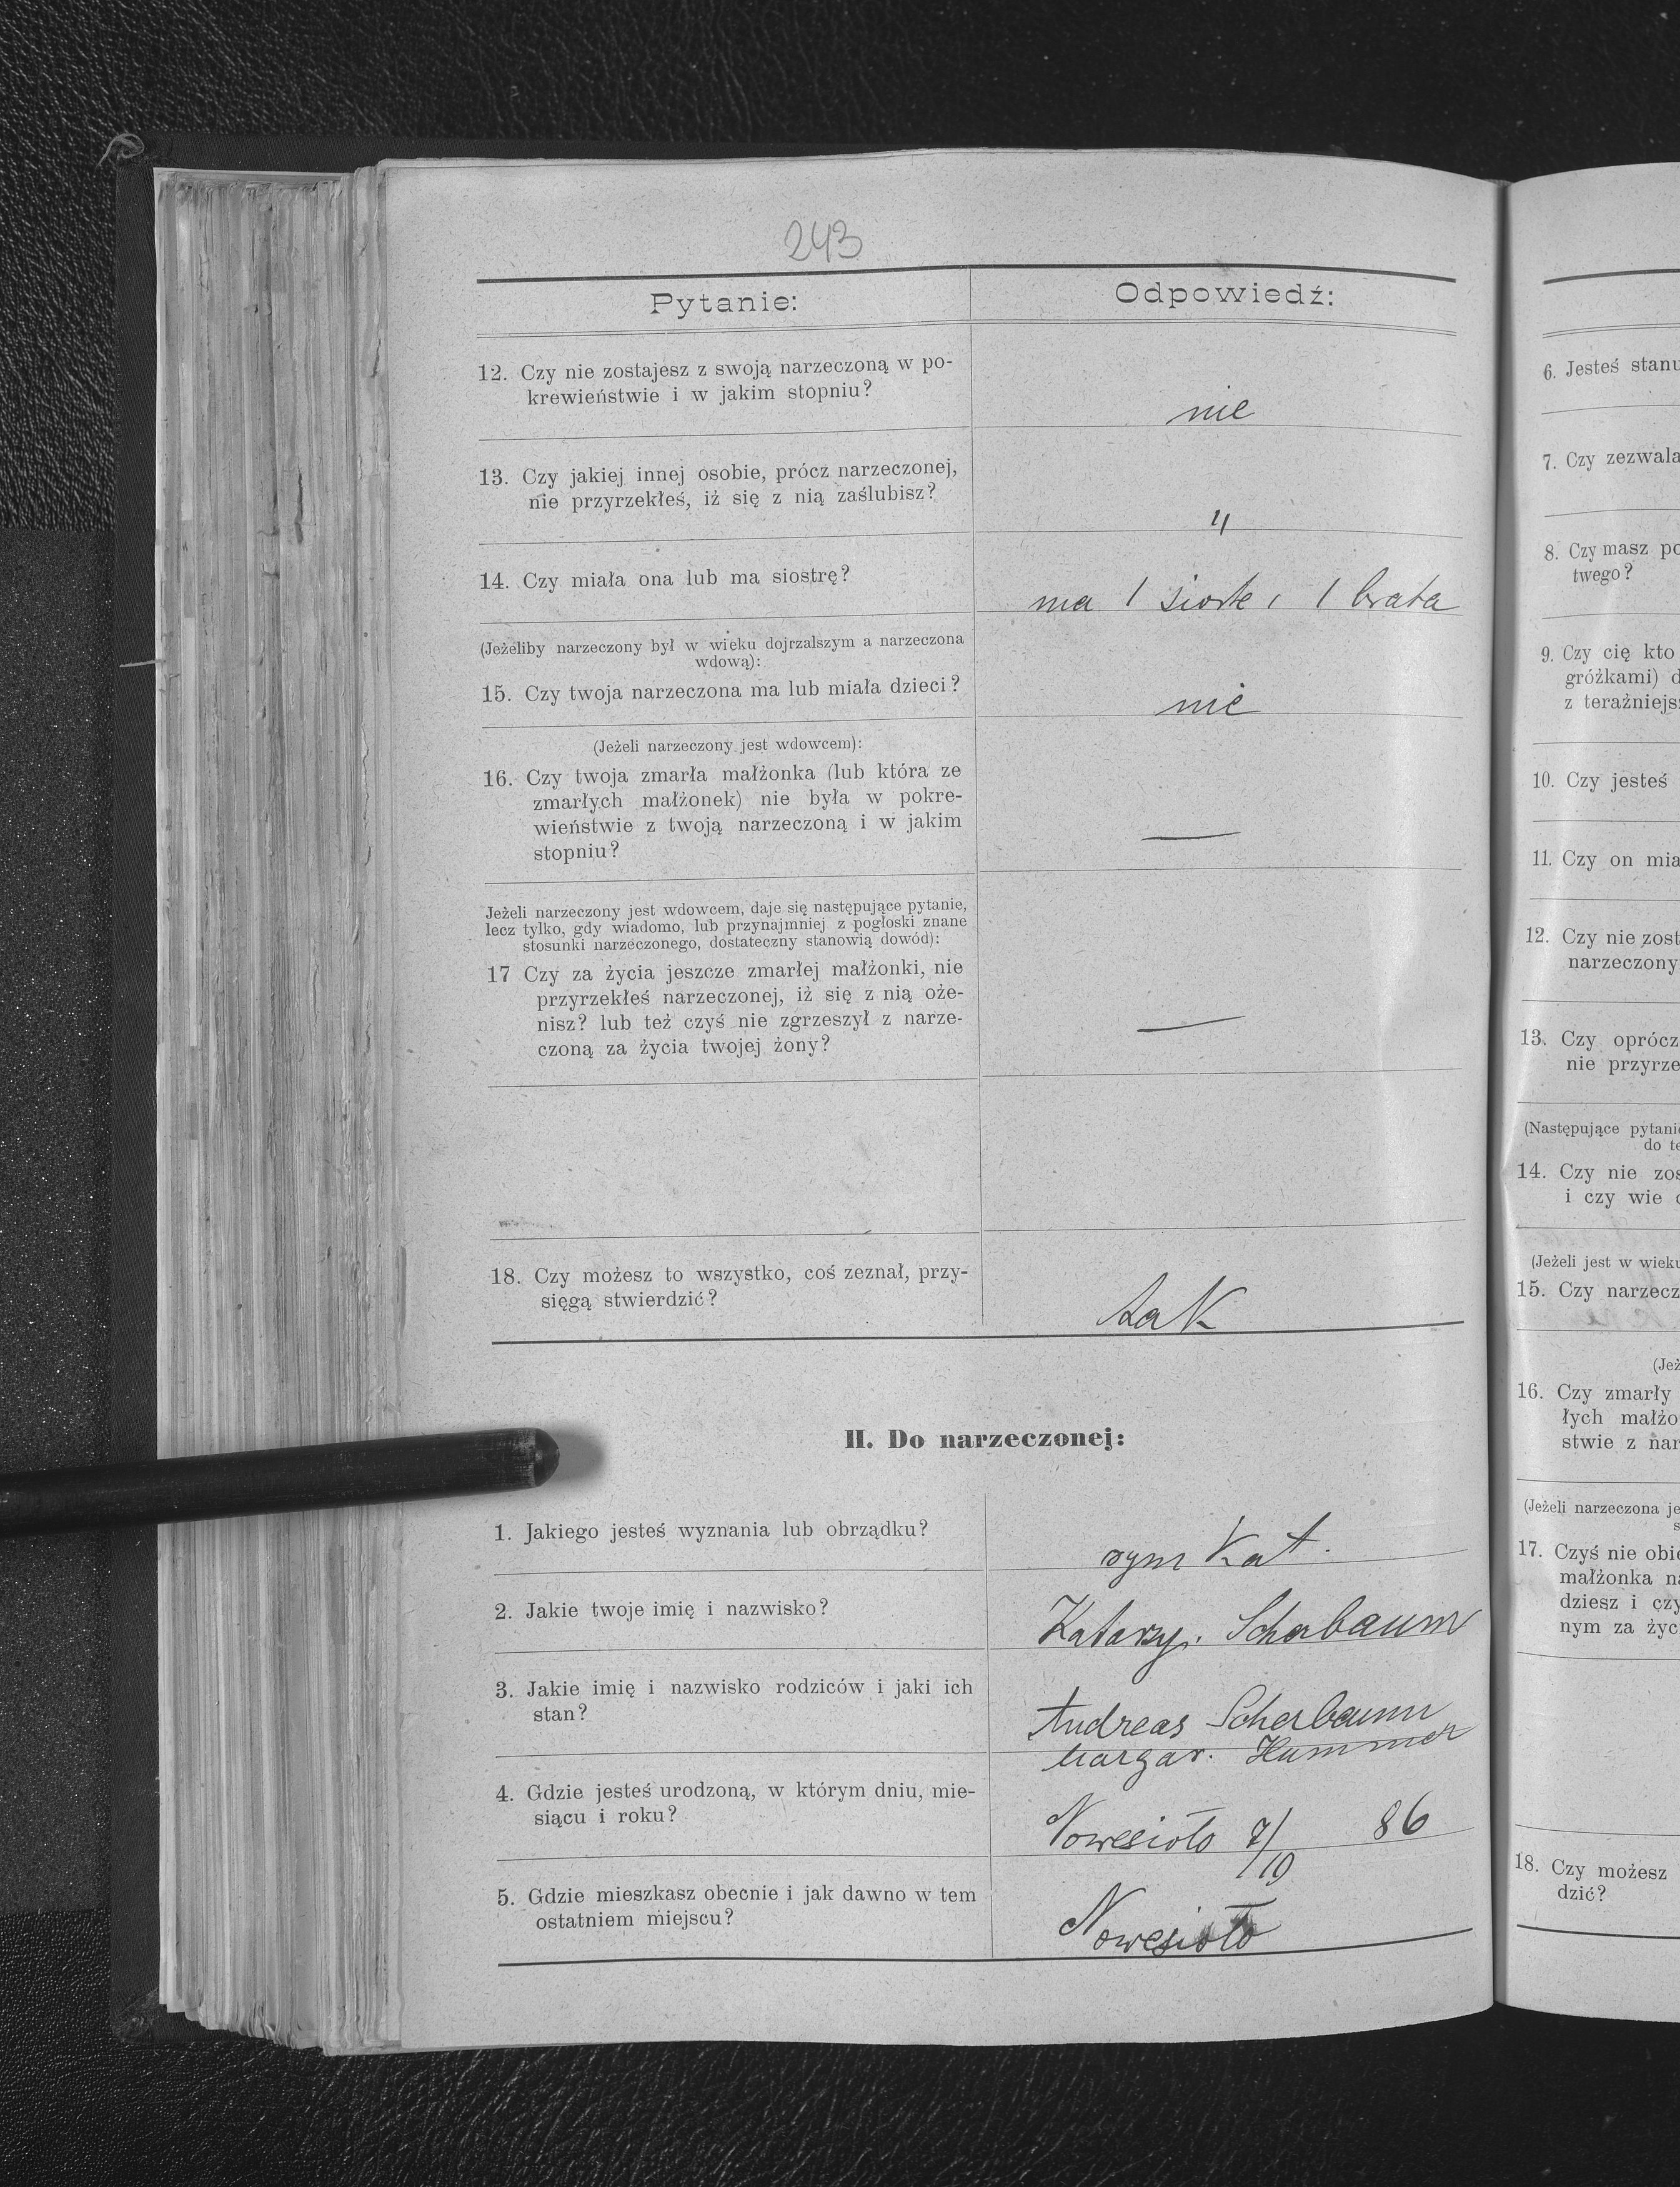 243
Pytanie:
Odpowiedź:
12. Czy nie zostajesz z swoją narzeczoną w po-
krewieństwie i w jakim stopniu?
nie
13. Czy jakiej innej osobie, prócz narzeczonej,
nie przyrzekłeś, iż się z nią zaślubisz?
"
14. Czy miała ona lub ma siostrę?
ma 1 siostr i 1 brata
(Jeżeliby narzeczony był w wieku dojrzalszym a narzeczona
wdową):
15. Czy twoja narzeczona ma lub miała dzieci?
nie
(Jeżeli narzeczony jest wdowcem):
16. Czy twoja zmarła małżonka (lub która ze
zmarłych małżonek) nie była w pokre-
wieństwie z twoją narzeczoną i w jakim
stopniu?
—
Jeżeli narzeczony jest wdowcem, daje się następujące pytanie,
lecz tylko, gdy wiadomo, lub przynajmniej z pogłoski znane
stosunki narzeczonego, dostateczny stanowią dowód):
17 Czy za życia jeszcze zmarłej małżonki, nie
przyrzekłeś narzeczonej, iż się z nią oże-
nisz? lub też czyś nie zgrzeszył z narze-
czoną za życia twojej żony?
—
18. Czy możesz to wszystko, coś zeznał, przy-
sięgą stwierdzić?
tak
II. Do narzeczonej:
1. Jakiego jesteś wyznania lub obrządku?
rym Kat.
2. Jakie twoje imię i nazwisko?
Katarzy. Scherbaum
3. Jakie imię i nazwisko rodziców i jaki ich
stan?
Andreas Scherbaum
Margar. Hummer
4. Gdzie jesteś urodzoną, w którym dniu, mie-
siącu i roku?
Nowesioło 7/10 86
5. Gdzie mieszkasz obecnie i jak dawno w tem
ostatniem miejscu?
Nowesioło
6. Jesteś stanu
7. Czy zezwala
8. Czy masz po
twego?
9. Czy cię kto
gróżkami) d
z teraźniejs
10. Czy jesteś
11. Czy on mia
12. Czy nie zost
narzeczony
13. Czy oprócz
nie przyrze
(Następujące pytani
do te
14. Czy nie zos
i czy wie
(Jeżeli jest w wieku
15. Czy narzecz
(Jeż
16. Czy zmarły
łych małżo
stwie z nar
(Jeżeli narzeczona je
s
17. Czyś nie obie
małżonka na
dziesz i czy
nym za życ
18. Czy możesz
dzić?